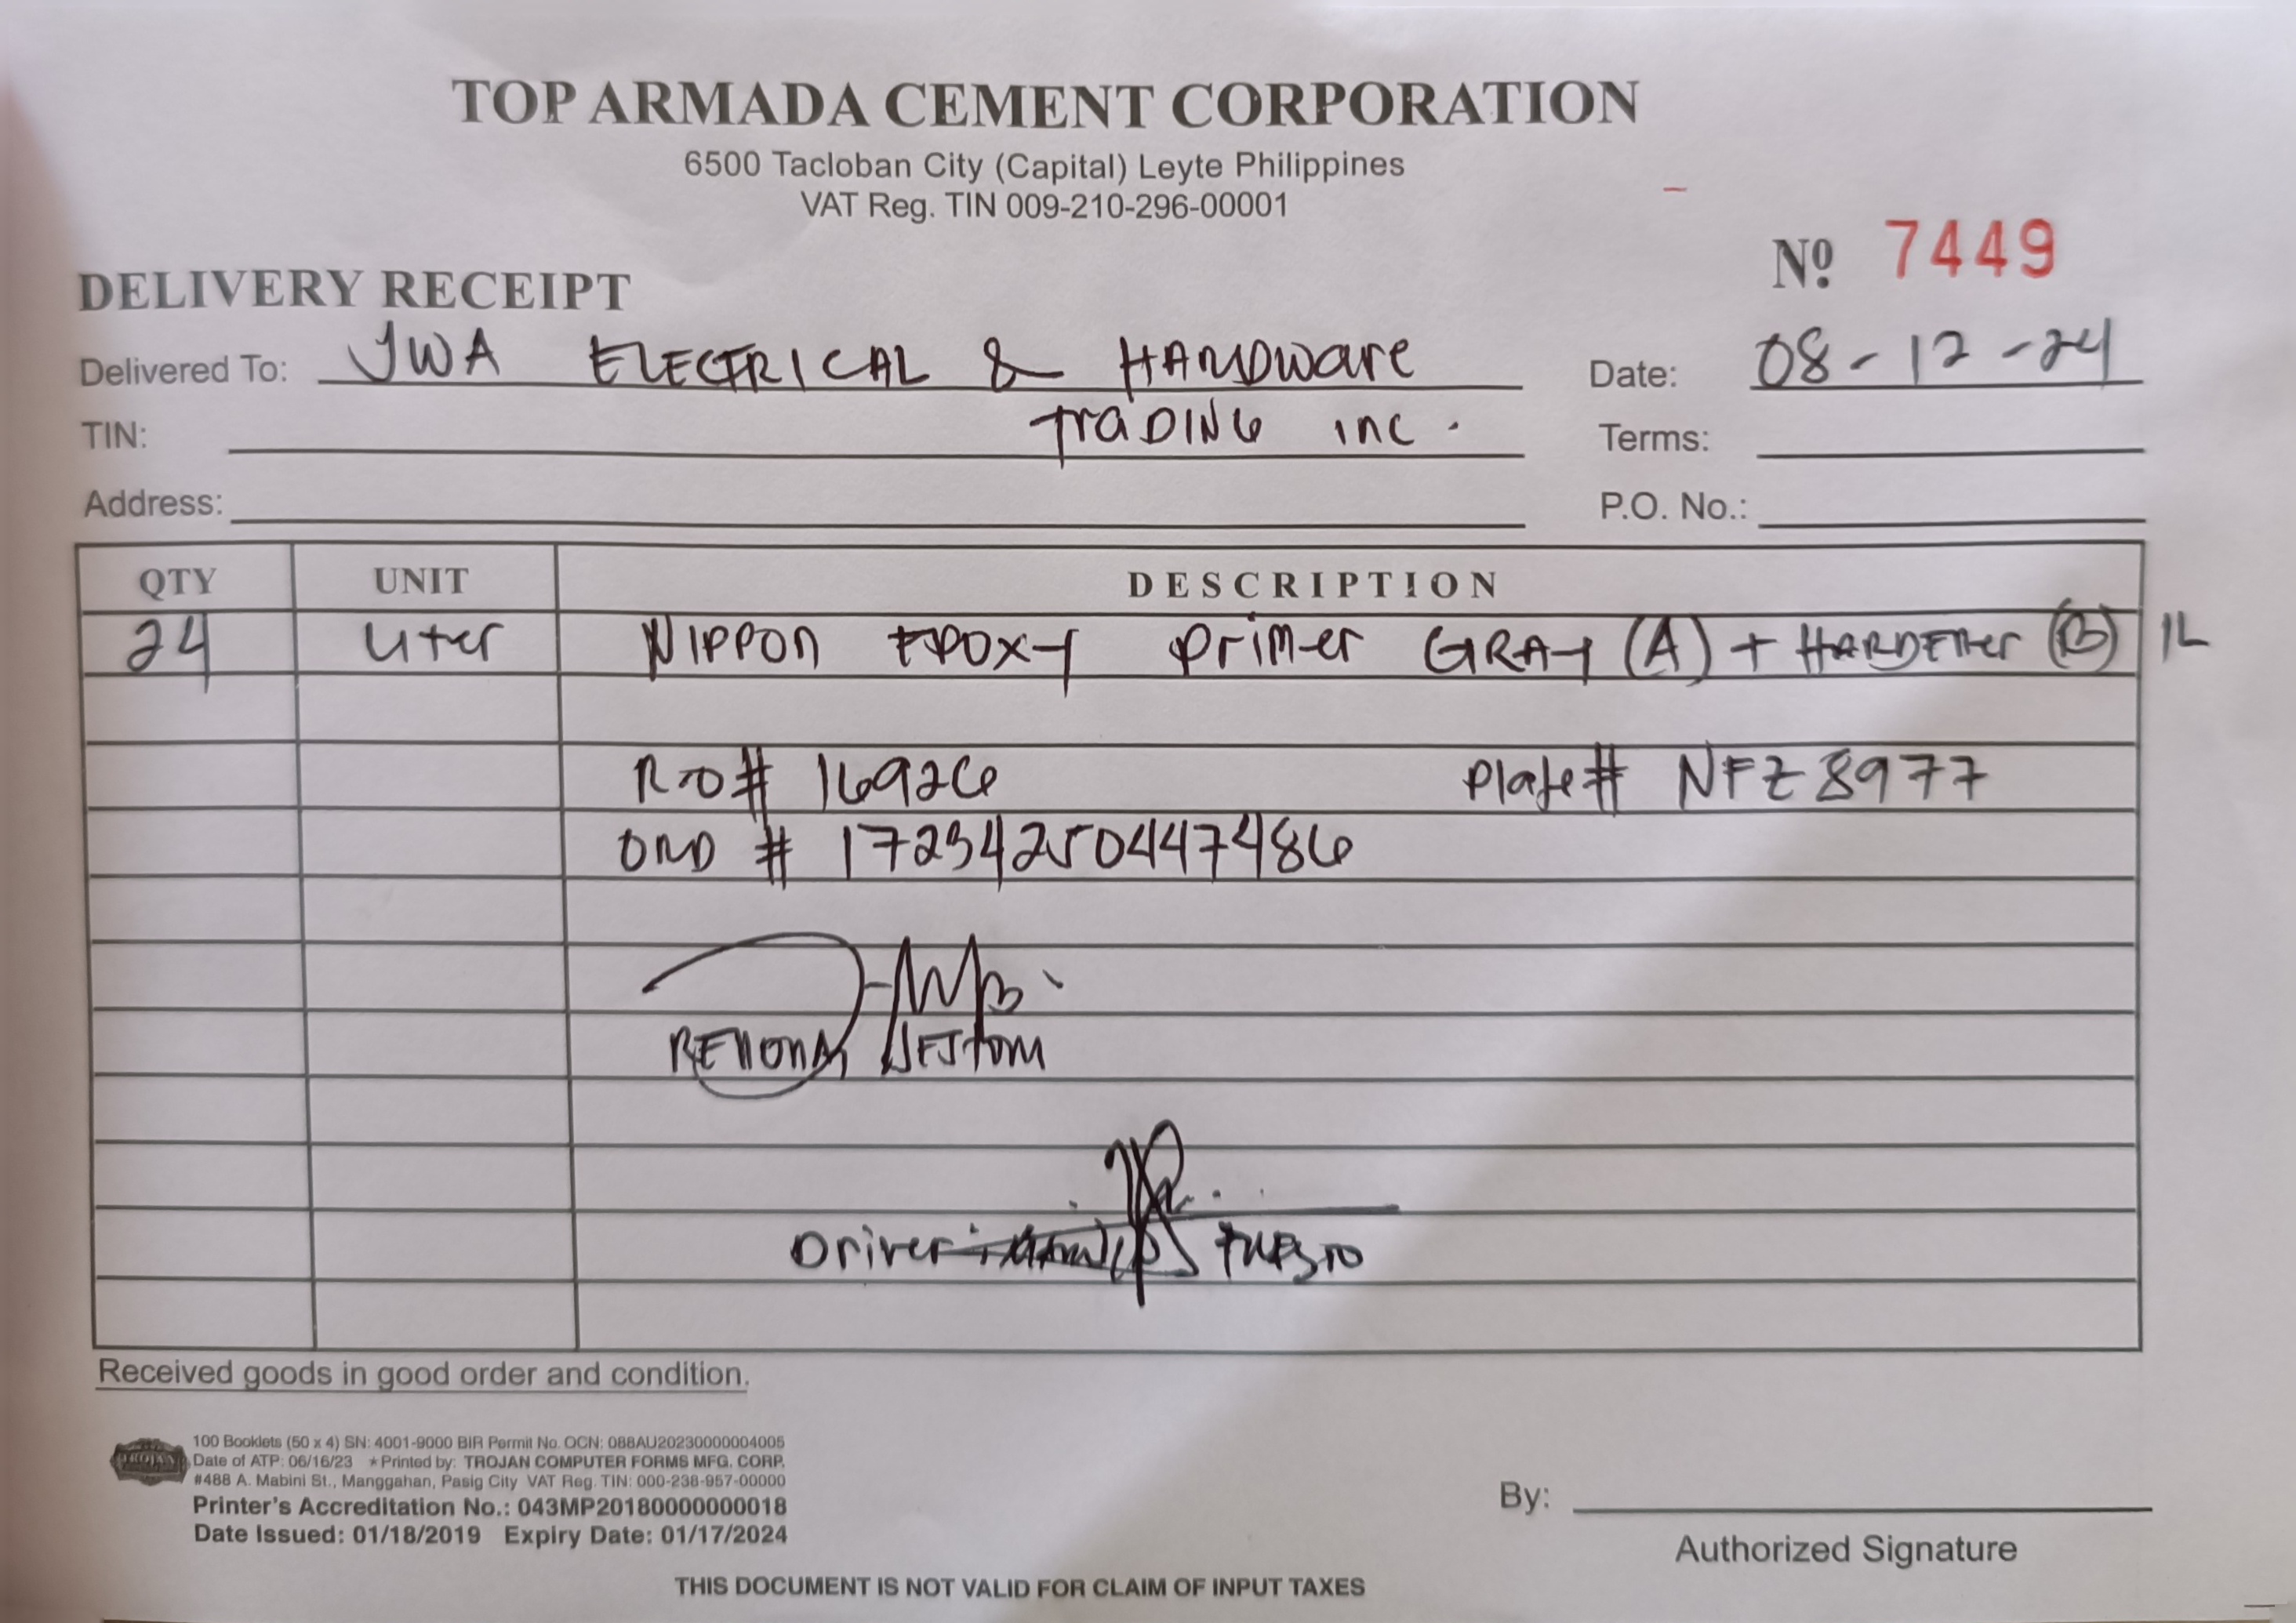 TOP ARMADA CEMENT CORPORATION
6500 Tacloban City (Capital) Leyte Philippines
VAT Reg. TIN 009-210-296-00001
Nº 7449
DELIVERY RECEIPT
Delivered To: JWA ELECTRICAL & HARDware Date: 08-12-24
TIN: TraDING inc. Terms:
Address: P.O. No.:
QTY UNIT DESCRIPTION
24 Liter NIPPON EPOXY Primer GRAY (A) + HARDENer (B) 1L
R-O# 16926 Plate# NFZ 8977
ORD # 17234250447486
Driver:
Received goods in good order and condition.
TROJAN
100 Booklets (50 x 4) SN: 4001-9000 BIR Permit No. OCN: 088AU20230000004005
Date of ATP: 06/16/23 ★Printed by: TROJAN COMPUTER FORMS MFG. CORP.
#488 A. Mabini St., Manggahan, Pasig City VAT Reg. TIN: 000-238-957-00000
Printer's Accreditation No.: 043MP20180000000018
Date Issued: 01/18/2019 Expiry Date: 01/17/2024
By:
Authorized Signature
THIS DOCUMENT IS NOT VALID FOR CLAIM OF INPUT TAXES